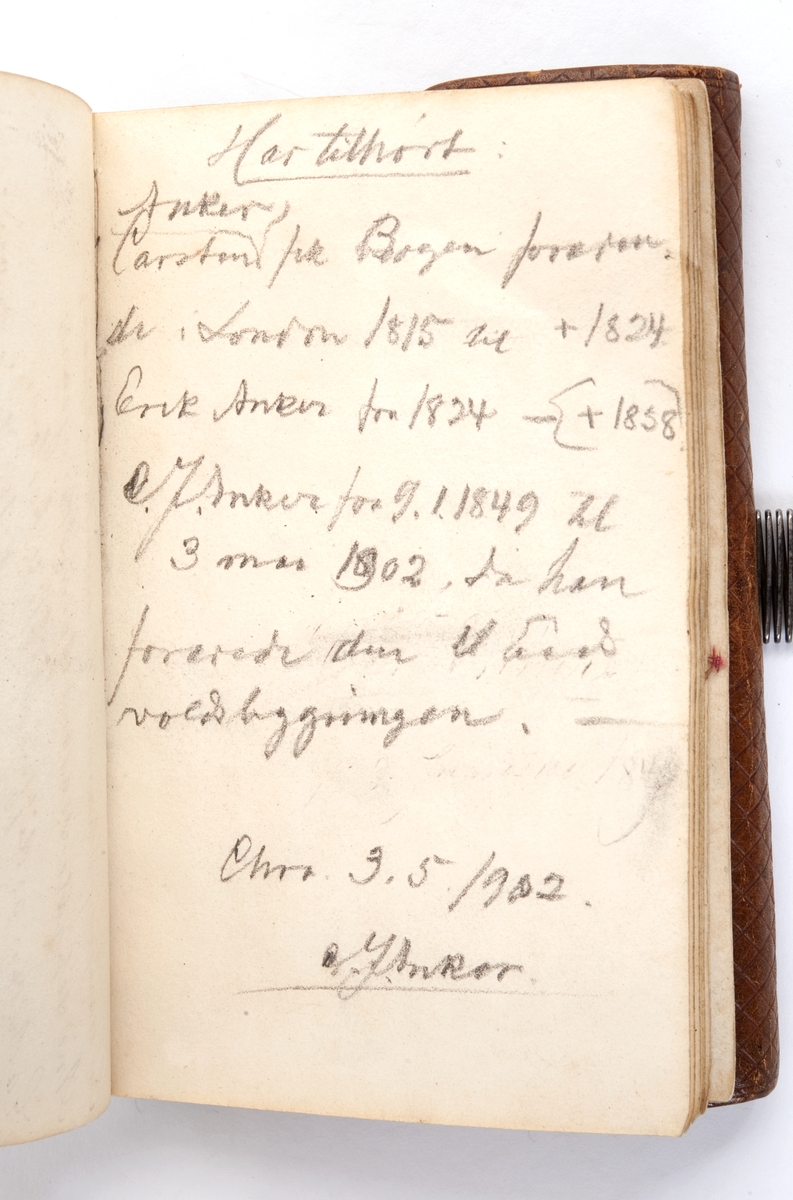 Har tilhørt:
Anker,
Carsten fik Bogen foræren-
de i London 1815 til + 1824
Erik Anker fra 1824 — {+ 1858}
C. J. Anker fra 9.1.1849 til
3 mai 1902, da han
forærede den til Eids
voldsbygningen. —
Chra. 3.5.1902.
C. J. Anker.